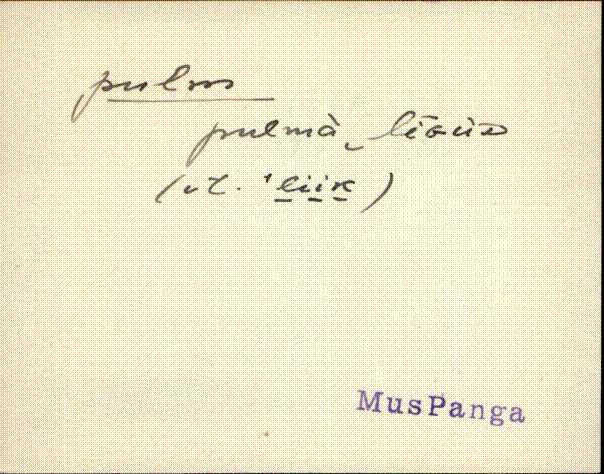 pulm
pulmà
(vt. 'liik)
MusPanga